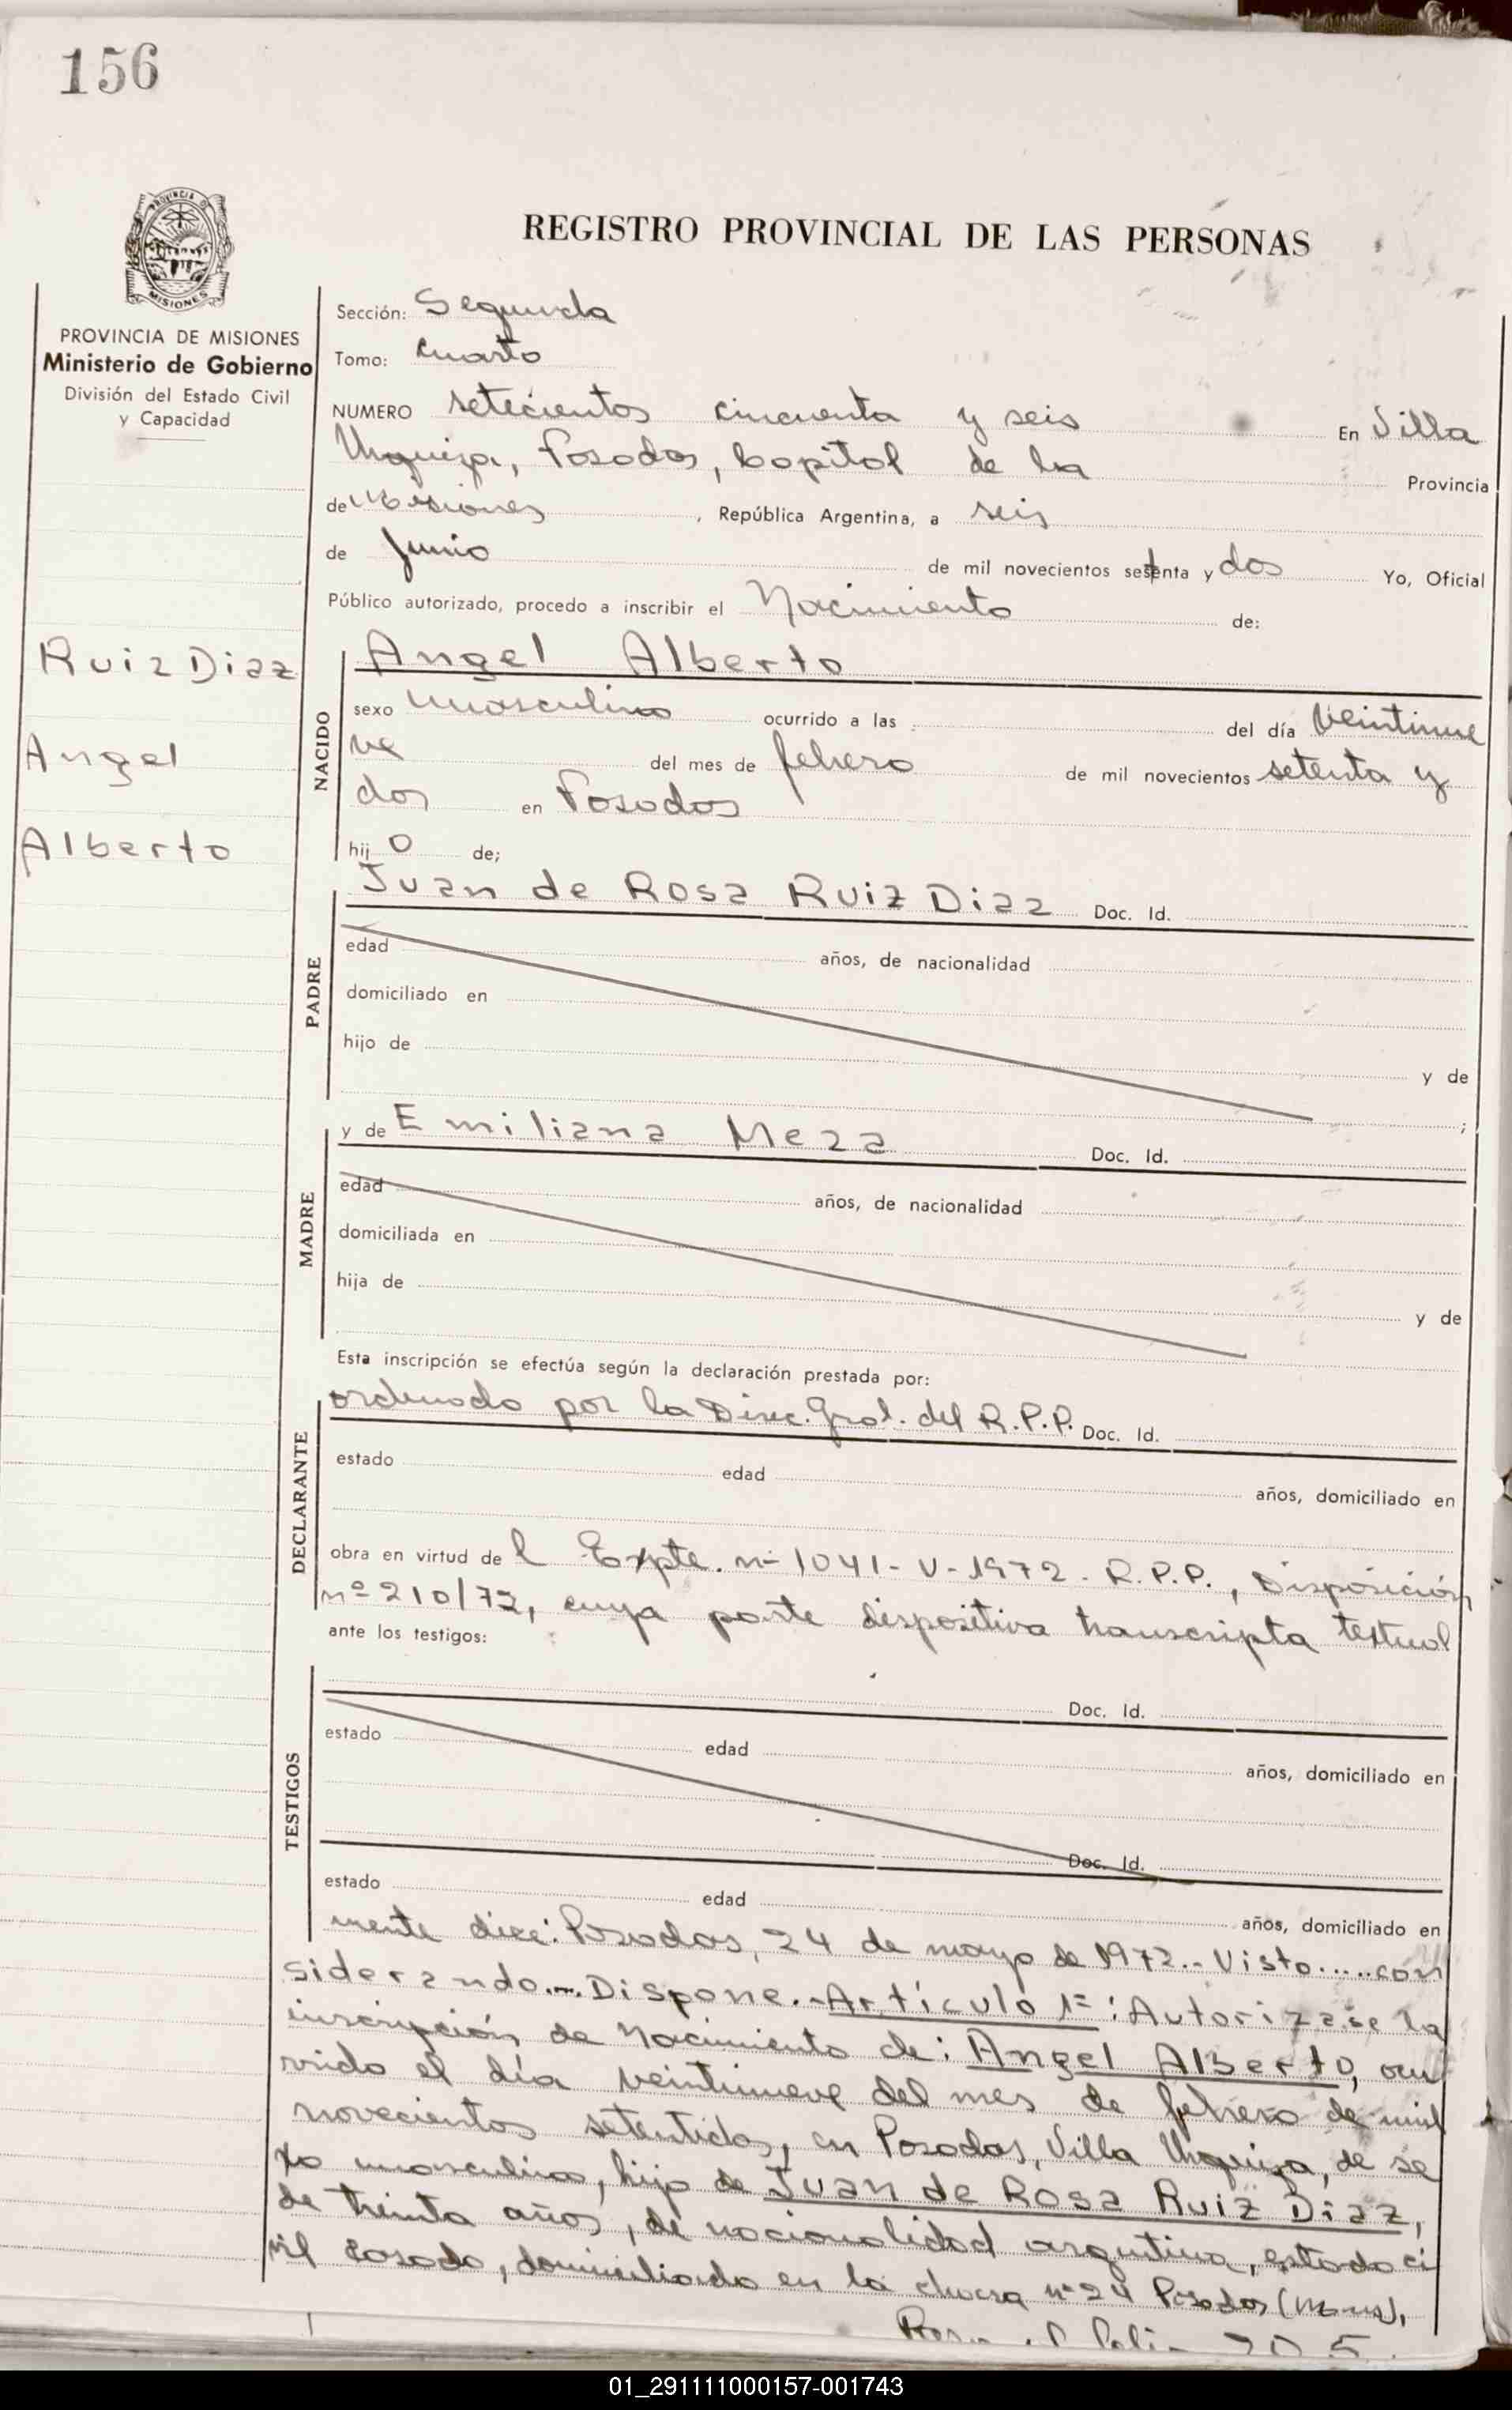 156
PROVINCIA D
MISIONES
REGISTRO PROVINCIAL DE LAS PERSONAS
PROVINCIA DE MISIONES
Ministerio de Gobierno
División del Estado Civil
y Capacidad
Sección: Segunda
Tomo: Cuarto
NUMERO setecientos cincuenta y seis En Villa
Urquiza, Posadas, Capital de la Provincia
de Misiones, República Argentina, a seis
de Junio de mil novecientos setenta y dos Yo, Oficial
Público autorizado, procedo a inscribir el Nacimiento de:
Ruiz Diaz
Angel
Alberto
NACIDO
Angel Alberto
sexo masculino ocurrido a las del día veintinue
ve del mes de febrero de mil novecientos setenta y
dos en Posadas
hij o de;
PADRE
Juan de Rosa Ruiz Diaz Doc. Id.
edad años, de nacionalidad
domiciliado en
hijo de y de
;
MADRE
y de Emiliana Meza Doc. Id.
edad años, de nacionalidad
domiciliada en
hija de y de
Esta inscripción se efectúa según la declaración prestada por:
DECLARANTE
ordenado por la Direc. Gral. del R.P.P. Doc. Id.
estado edad años, domiciliado en
obra en virtud de l Expte. nº 1041-V-1972. R.P.P., Disposición
nº 210/72, cuya parte dispositiva transcripta textual
ante los testigos:
TESTIGOS
Doc. Id.
estado edad años, domiciliado en
Doc. Id.
estado edad años, domiciliado en
mente dice: Posadas, 24 de mayo de 1972.- Visto.....con
siderando.... Dispone.- Artículo 1º: Autorizase la
inscripción de Nacimiento de: Angel Alberto, ocu
rrido el día veintinueve del mes de febrero de mil
novecientos setentidos, en Posadas, Villa Urquiza, de se
xo masculino, hijo de Juan de Rosa Ruiz Diaz,
de treinta años, de nacionalidad argentina, estado ci
vil casado, domiciliado en la chacra nº 24 Posadas (Mnes),
01_291111000157-001743